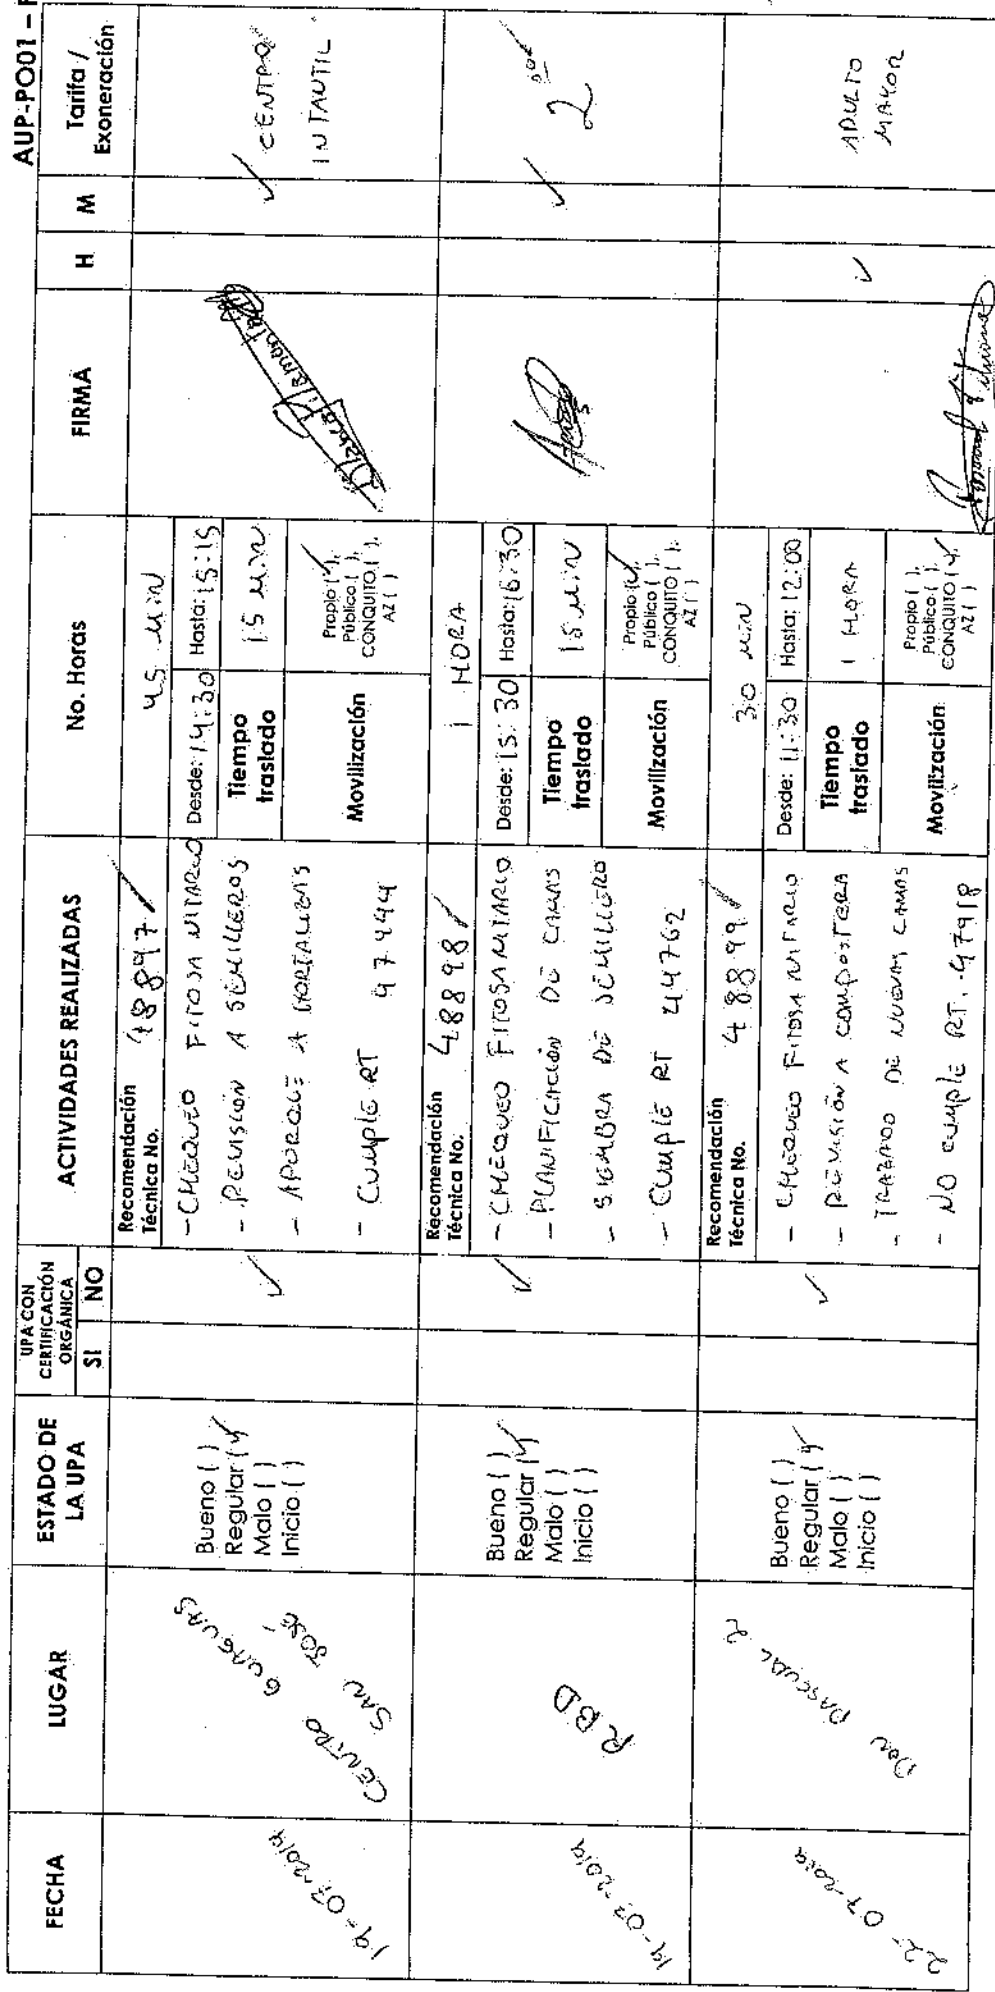 AUP-PO01 – F
FECHA
LUGAR
ESTADO DE LA UPA
UPA CON CERTIFICACIÓN ORGÁNICA
SI
NO
ACTIVIDADES REALIZADAS
No. Horas
FIRMA
H
M
Tarifa / Exoneración
19-07-2019
CENTRO GUAGUAS
SAN JOSÉ
Bueno ( )
Regular (✓)
Malo ( )
Inicio ( )
✓
Recomendación Técnica No. 48897 ✓
- CHEQUEO FITOSANITARIO
- REVISIÓN A SEMILLEROS
- APORQUE A HORTALIZAS
- CUMPLE RT 47444
45 MIN
Desde: 14:30
Hasta: 15:15
Tiempo traslado
15 MIN
Movilización
Propio (✓),
Público ( ),
CONQUITO ( ),
AZ ( )
✓
CENTRO
INFANTIL
19-07-2019
R.B.D
Bueno ( )
Regular (✓)
Malo ( )
Inicio ( )
✓
Recomendación Técnica No. 48898 ✓
- CHEQUEO FITOSANITARIO
- PLANIFICACIÓN DE CAMAS
- SIEMBRA DE SEMILLERO
- CUMPLE RT 44762
1 HORA
Desde: 15:30
Hasta: 16:30
Tiempo traslado
15 MIN
Movilización
Propio (✓),
Público ( ),
CONQUITO ( ),
AZ ( )
✓
2
22-07-2019
DON PASCUAL 2
Bueno ( )
Regular (✓)
Malo ( )
Inicio ( )
✓
Recomendación Técnica No. 48899 ✓
- CHEQUEO FITOSANITARIO
- REVISIÓN A COMPOSTERA
- TRAZADO DE NUEVAS CAMAS
- NO CUMPLE RT. 47918
30 MIN
Desde: 11:30
Hasta: 12:00
Tiempo traslado
1 HORA
Movilización
Propio ( ),
Público ( ),
CONQUITO (✓),
AZ ( )
✓
ADULTO
MAYOR